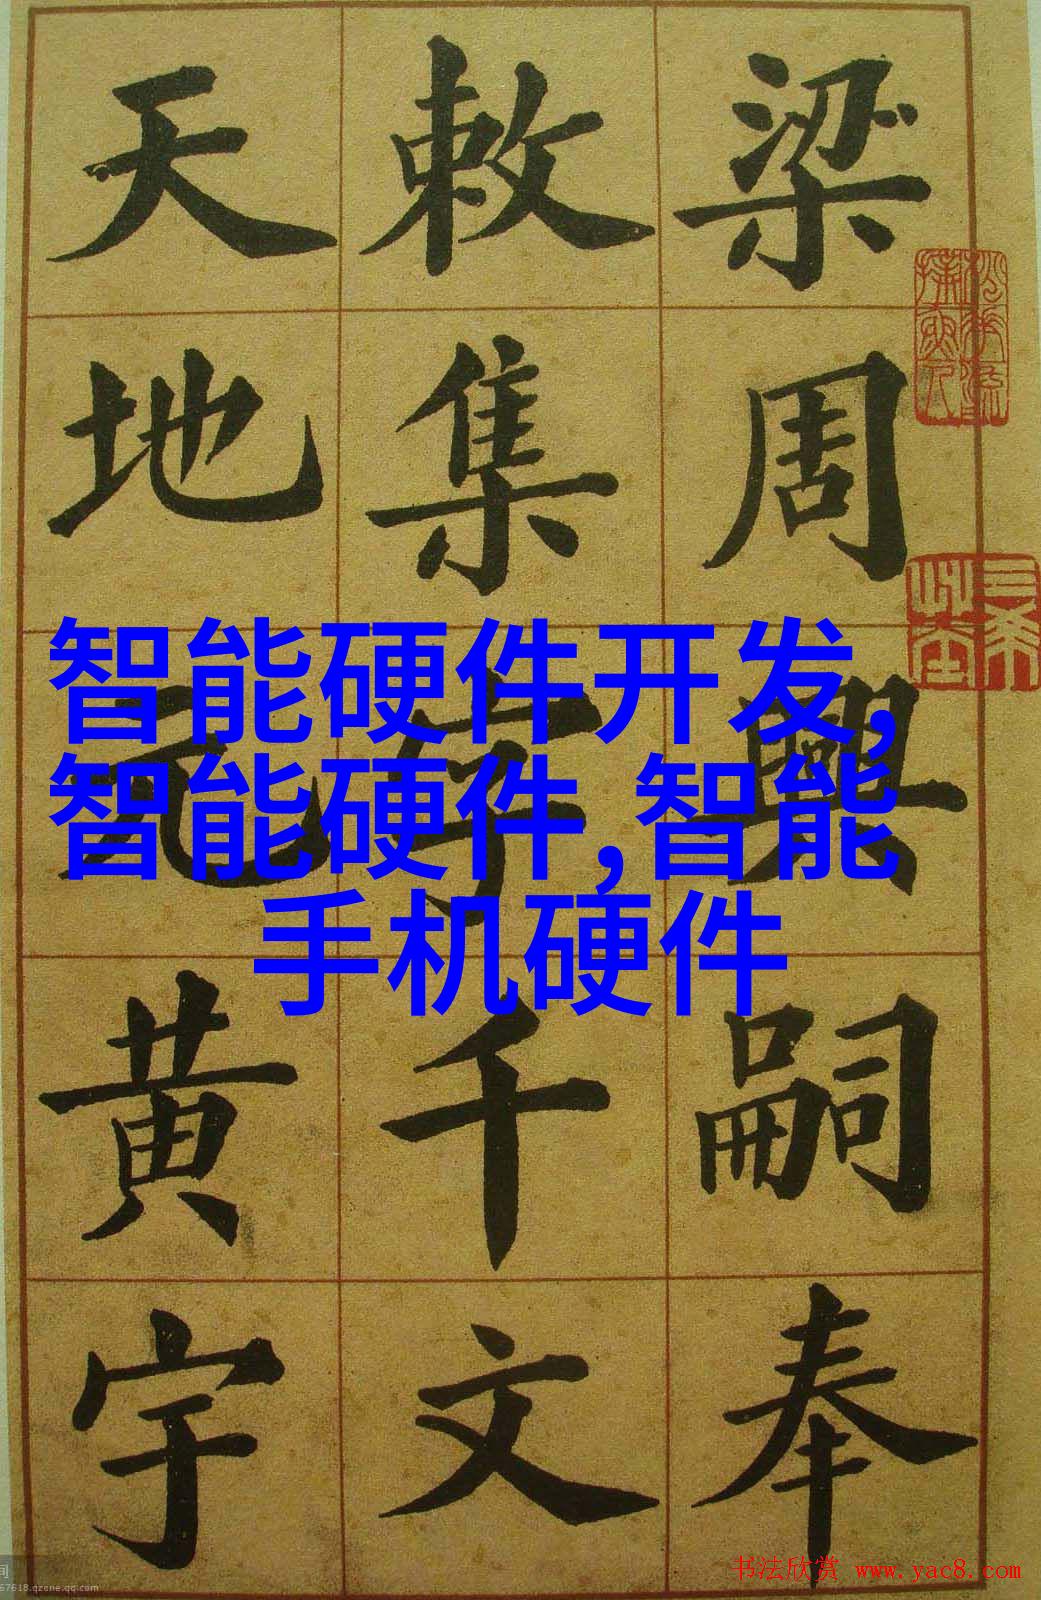 梁周興嗣奉
敕集字千文
天地元黄宇
智能硬件开发,
智能硬件,智能
手机硬件
书法欣赏 www.yac8.com
间
67618.qzone.qq.com